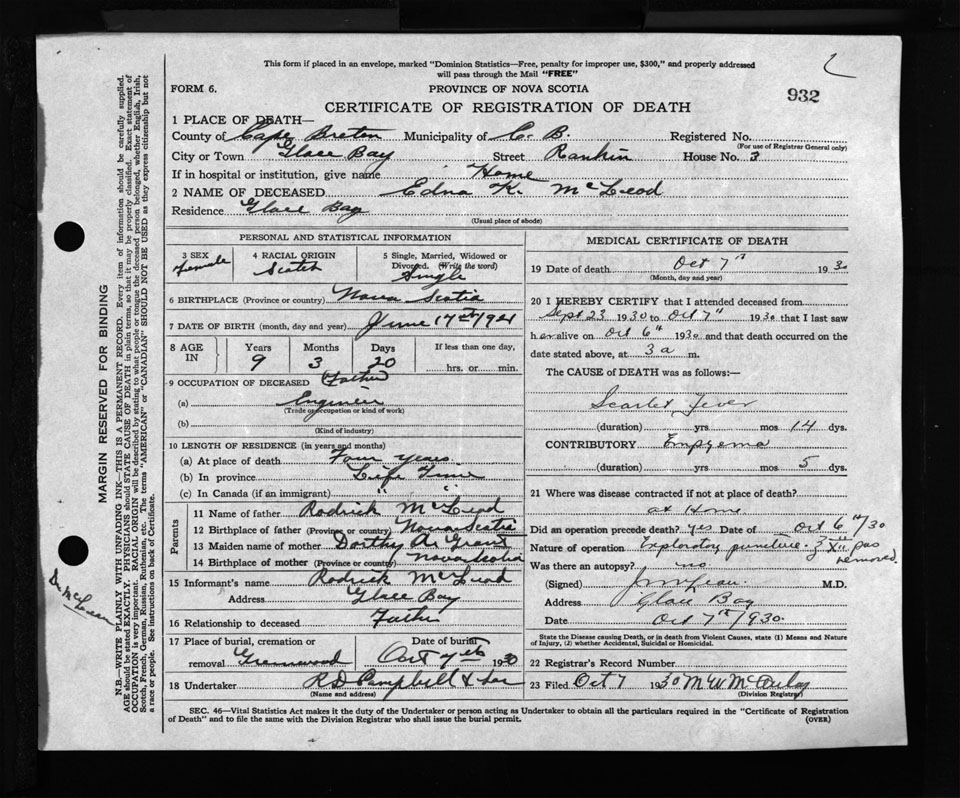 This form if placed in an envelope, marked "Dominion Statistics—Free, penalty for improper use, $300," and properly addressed
will pass through the Mail "FREE"
FORM 6.
PROVINCE OF NOVA SCOTIA
932
CERTIFICATE OF REGISTRATION OF DEATH
1 PLACE OF DEATH—
County of Cape Breton Municipality of C. B. Registered No.
(For use of Registrar General only)
City or Town Glace Bay Street Rankin House No. 3
If in hospital or institution, give name Home
2 NAME OF DECEASED Edna K. McLeod
Residence Glace Bay
(Usual place of abode)
PERSONAL AND STATISTICAL INFORMATION
3 SEX Female
4 RACIAL ORIGIN Scotch
5 Single, Married, Widowed or Divorced. (Write the word) Single
6 BIRTHPLACE (Province or country) Nova Scotia
7 DATE OF BIRTH (month, day and year) June 17th 1921
8 AGE IN Years 9 Months 3 Days 20 If less than one day, hrs. or min.
9 OCCUPATION OF DECEASED (Father)
(a) Engineer
(Trade or occupation or kind of work)
(b)
(Kind of industry)
10 LENGTH OF RESIDENCE (in years and months)
(a) At place of death Four years
(b) In province Life Time
(c) In Canada (if an immigrant) " "
Parents
11 Name of father Rodrick McLeod
12 Birthplace of father (Province or country) Nova Scotia
13 Maiden name of mother Dorthy A. Grant
14 Birthplace of mother (Province or country) Nova Scotia
15 Informant's name Rodrick McLeod
Address Glace Bay
16 Relationship to deceased Father
17 Place of burial, cremation or removal Greenwood
Date of burial Oct 1930
18 Undertaker R D Campbell & Son
(Name and address)
MEDICAL CERTIFICATE OF DEATH
19 Date of death Oct 7th 1930
(Month, day and year)
20 I HEREBY CERTIFY that I attended deceased from
Sept 23 1930 to Oct 7th 1930 that I last saw
her alive on Oct 6th 1930 and that death occurred on the
date stated above, at 3 a m.
The CAUSE of DEATH was as follows:—
Scarlet fever
(duration) yrs. mos 14 dys.
CONTRIBUTORY Empyema
(duration) yrs mos 5 dys.
21 Where was disease contracted if not at place of death?
at Home
Did an operation precede death? yes Date of Oct 6th/30
Nature of operation Exploratory puncture. pus
removed.
Was there an autopsy? no
(Signed) M.D.
Address Glace Bay
Date Oct 7th 1930.
State the Disease causing Death, or in death from Violent Causes, state (1) Means and Nature
of Injury, (2) whether Accidental, Suicidal or Homicidal.
22 Registrar's Record Number
23 Filed Oct 7 1930 M W
(Division Registrar)
SEC. 46—Vital Statistics Act makes it the duty of the Undertaker or person acting as Undertaker to obtain all the particulars required in the "Certificate of Registration
of Death" and to file the same with the Division Registrar who shall issue the burial permit.
(OVER)
MARGIN RESERVED FOR BINDING
N.B.—WRITE PLAINLY WITH UNFADING INK—THIS IS A PERMANENT RECORD. Every item of information should be carefully supplied.
AGE should be stated EXACTLY. PHYSICIANS should STATE CAUSE OF DEATH in plain terms, so that it may be properly classified. Exact statement of
OCCUPATION is very important. RACIAL ORIGIN will be described by stating to what people or tongue the deceased person belonged, whether English, Irish,
Scotch, French, German, Russian, Ruthenian, etc. The terms "AMERICAN" or "CANADIAN" SHOULD NOT BE USED as they express citizenship but not
a race or people. See instructions on back of Certificate.
Dr